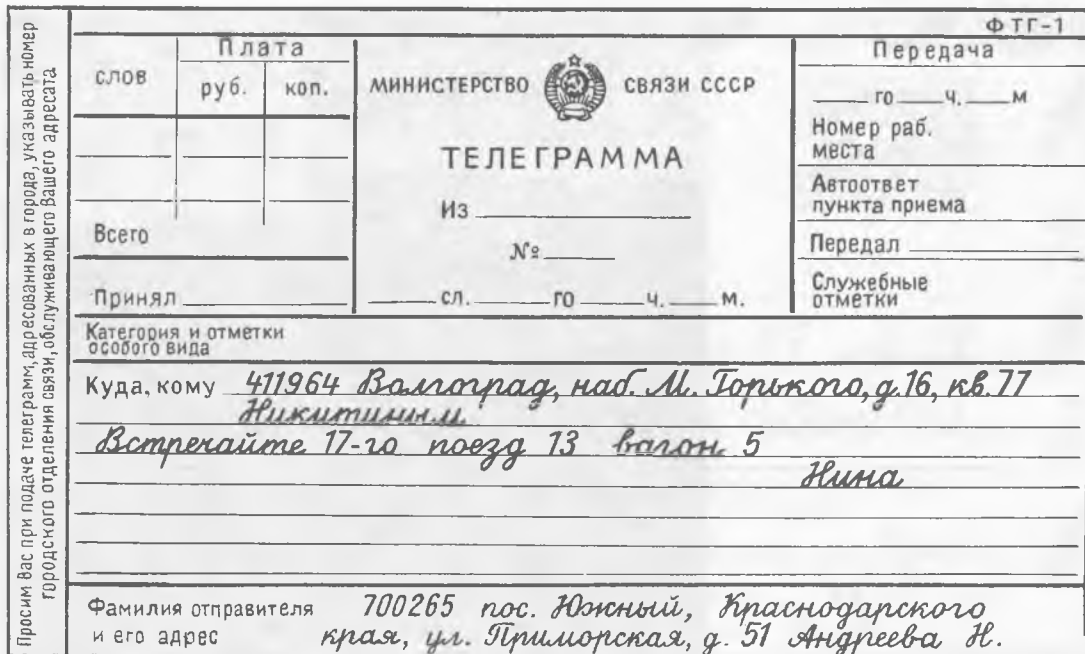 Просим Вас при подаче телеграмм, адресованных в города, указывать номер
городского отделения связи, обслуживающего Вашего адресата
Ф ТГ-1
слов
Плата
руб. коп.
Всего
Принял
МИНИСТЕРСТВО СВЯЗИ СССР
ТЕЛЕГРАММА
Из
№
сл. го ч. м.
Передача
го ч. м
Номер раб.
места
Автоответ
пункта приема
Передал
Служебные
отметки
Категория и отметки
особого вида
Куда, кому 411964 Волгоград, наб. М. Горького, д. 16, кв. 77
Никитиным
Встречайте 17-го поезд 13 вагон 5
Нина
Фамилия отправителя 700265 пос. Южный, Краснодарского
и его адрес края, ул. Приморская, д. 51 Андреева Н.